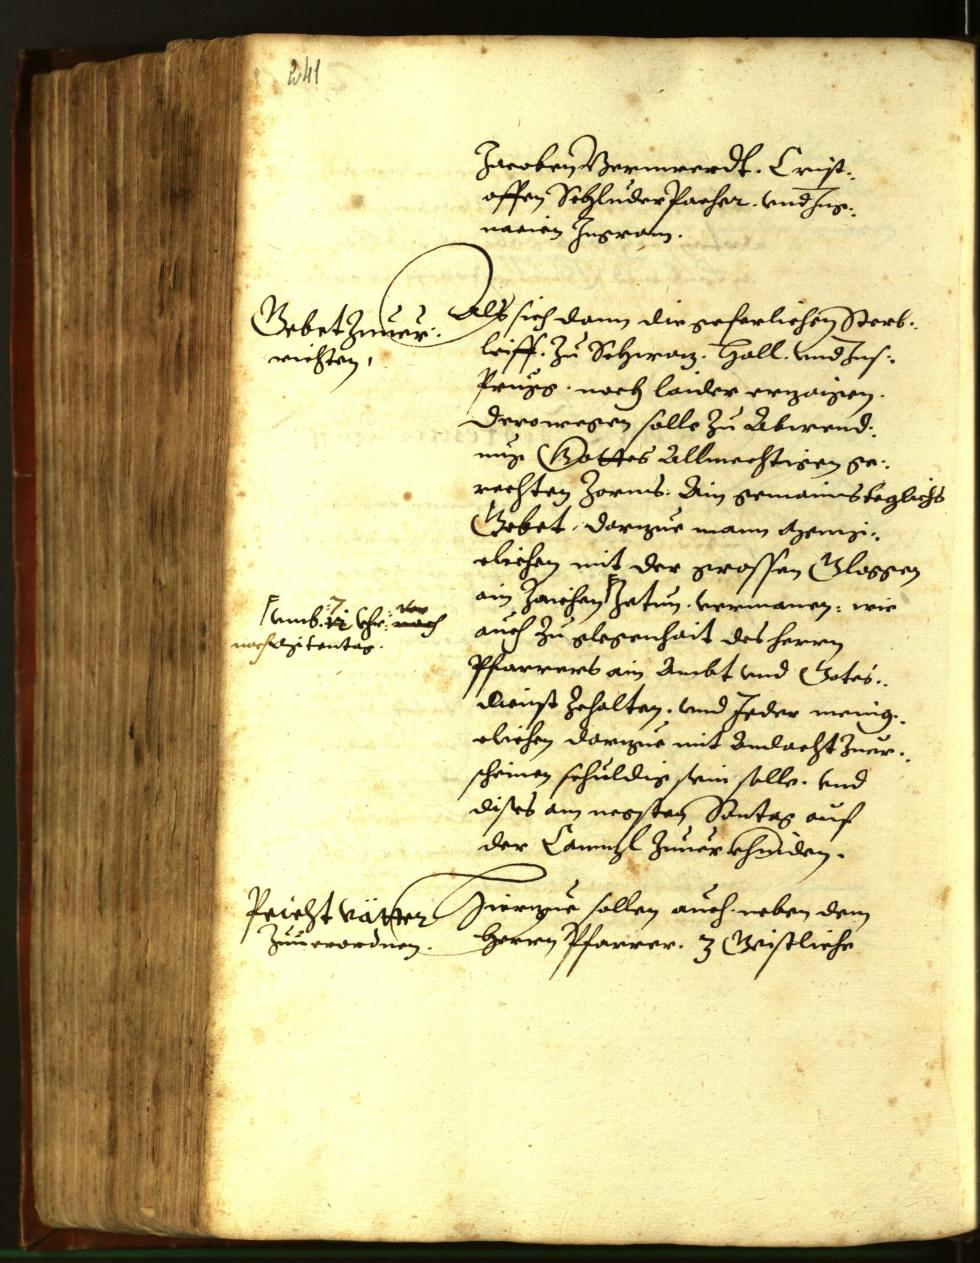 241
Jacoben Vermwerdt. Crist:
offen Schluderpacher. vnd Jng:
nacien Jngram.
Gebet Zuuer:
richten,
Als sich dann die geferlichen Sterb:
leiff. Zu Schwaz. Hall. vnd Jns:
Prugg. noch laider erzaigen.
Derowegen solle Zu Abwend:
ung Gottes Allmechtigen ge:
rechten Zorns. Ain gemains teglichs
Gebet. darzue mann menig:
elichen mit der grossen Gloggen
ain Zaichen Zetun. vermanen: wie
vmb 7 Vhr: vor
nach
nachmitentag.
auch Zu glegenhait des herrn
Pfarrers ain Ambt vnd Gotes:
dienst Zehalten. vnd Jeder menig:
elichen darzue mit Andacht Zuer:
scheinen schuldig sein solle. vnd
dises am negsten Sontag auf
der Canntzl Zuuerkhünden.
Peicht vätter
Zuuerordnen.
Hierzue sollen auch neben dem
herrn Pfarrer. 3 Geistliche